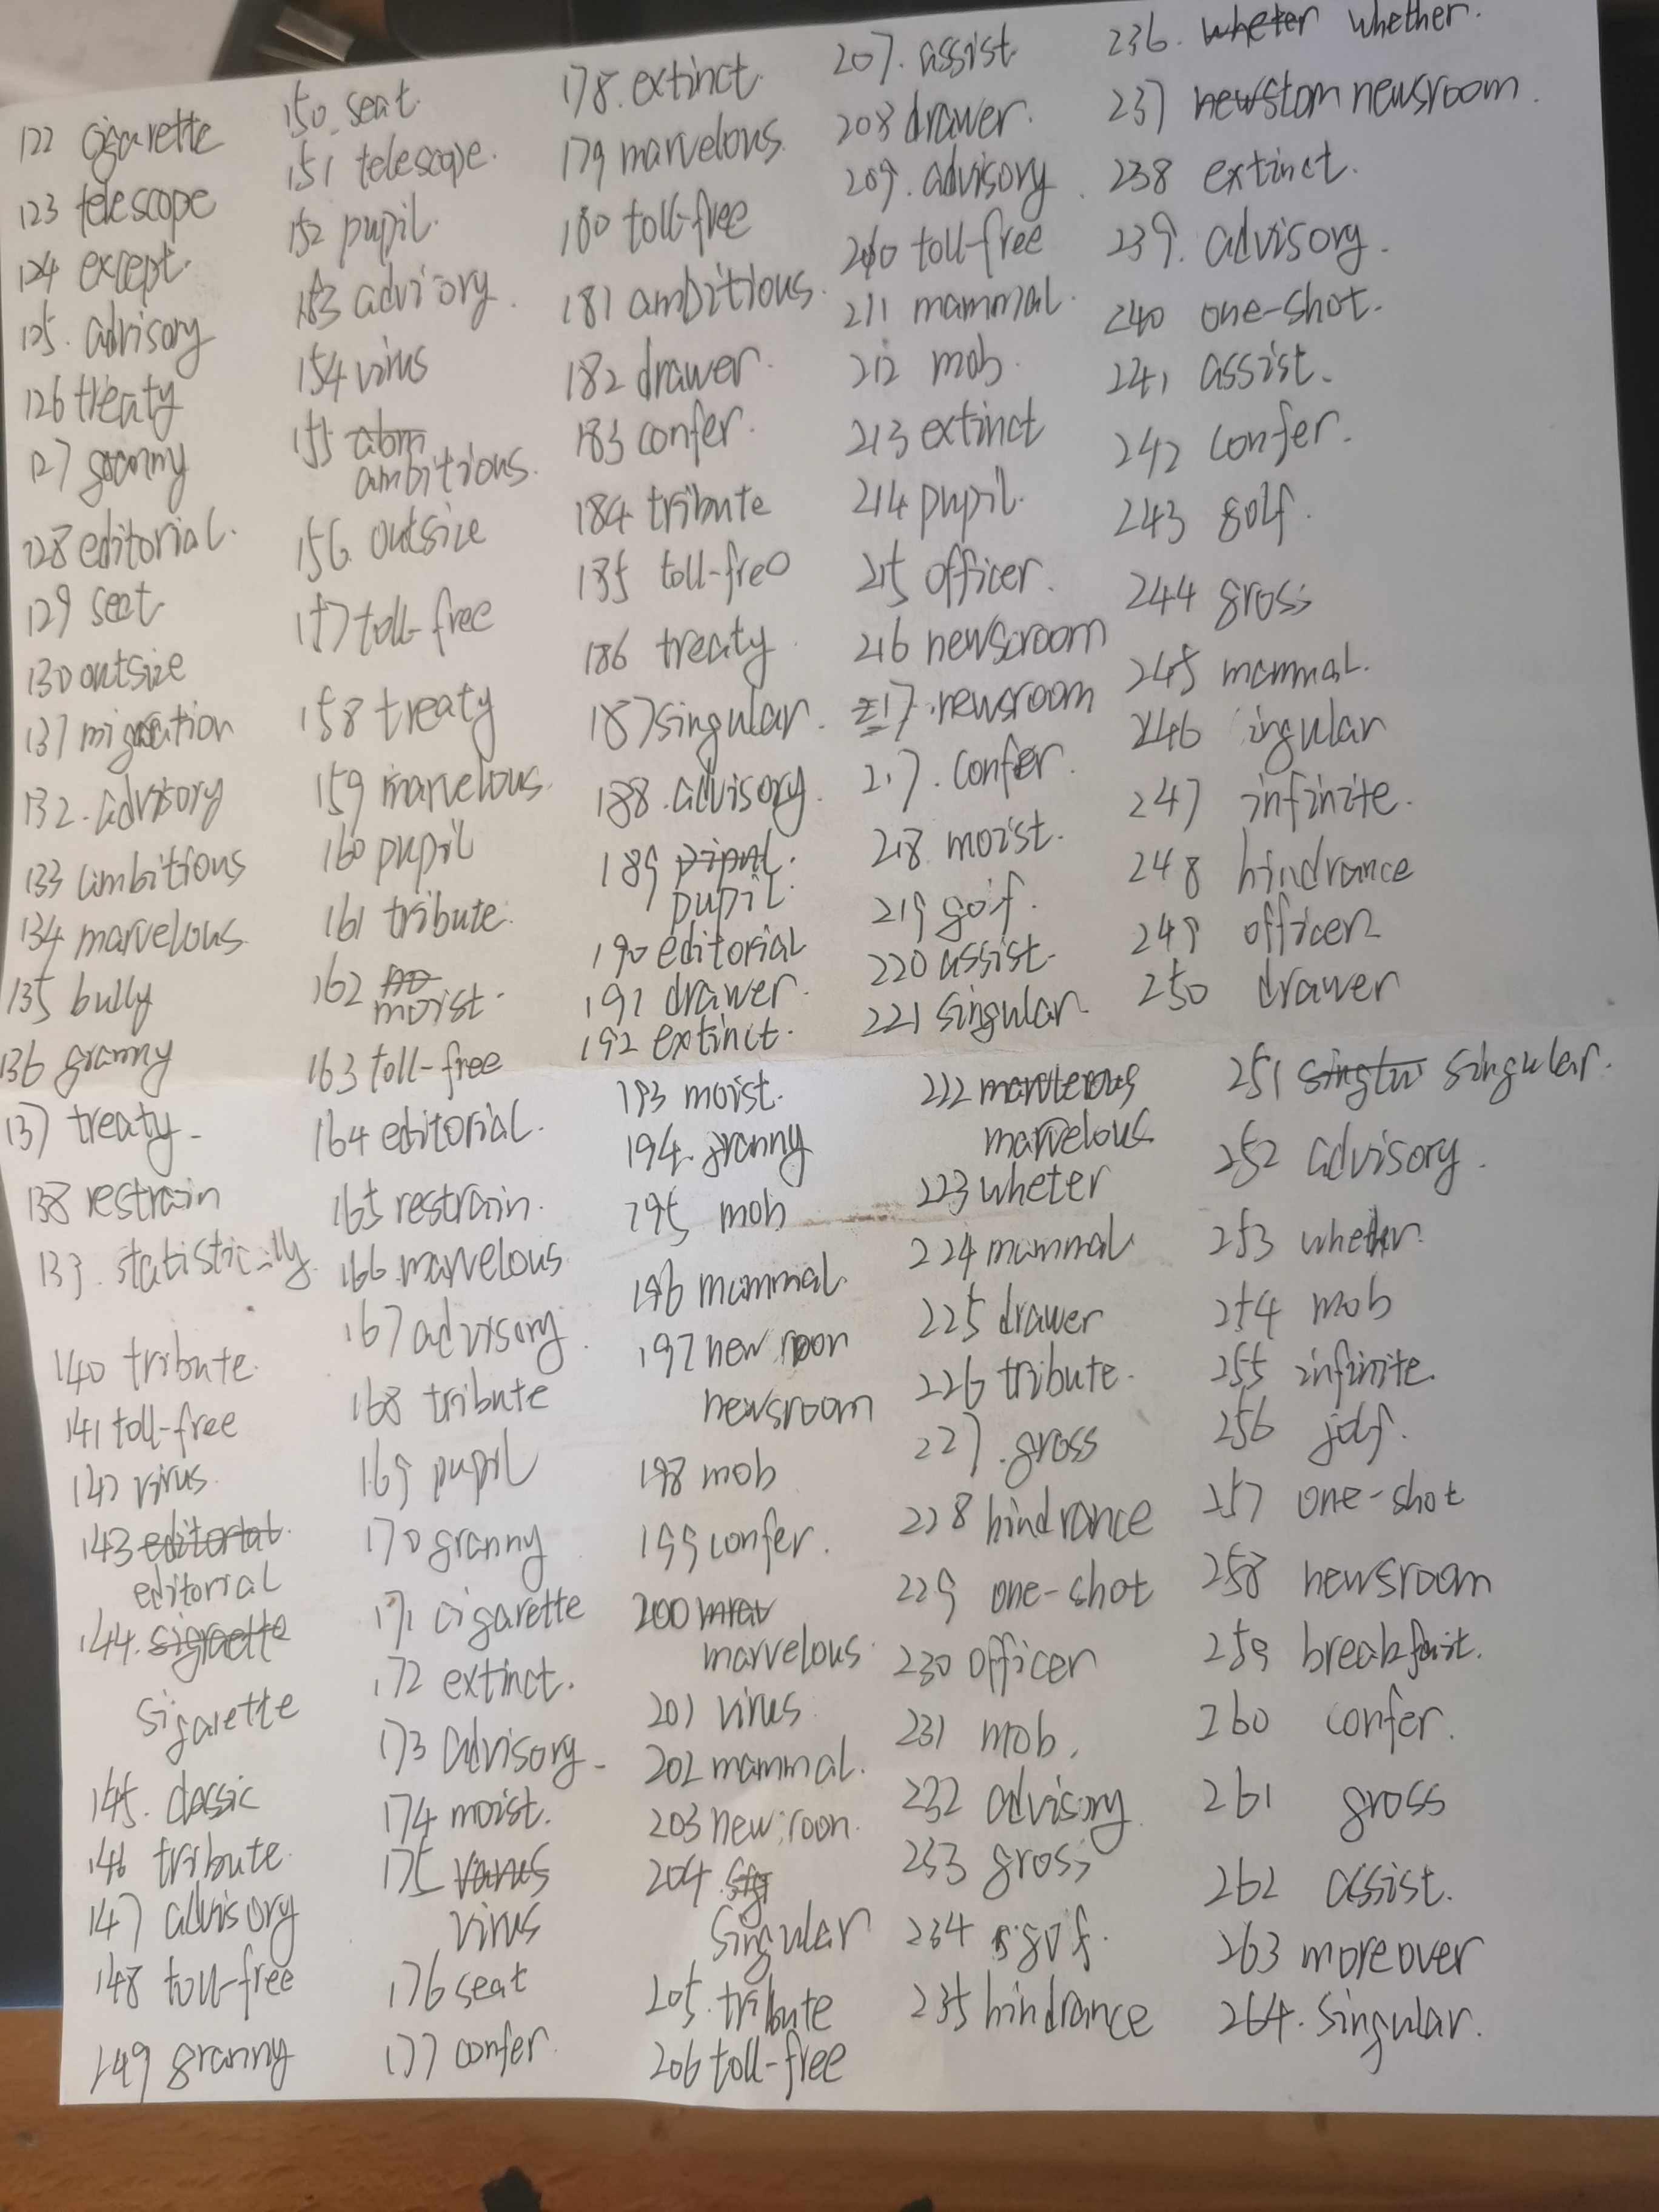 122 cigarette
123 telescope
124 except.
125. advisory
126 treaty
127 granny
128 editorial.
129 seat.
130 outsize
131 migration
132. advisory
133 ambitious
134 marvelous.
135 bully
136 granny
137 treaty.
138 restrain
139. statistically.
140 tribute.
141 toll-free
142 virus.
143 editorial.
editorial
144.
sigarette
145. classic
146 tribute.
147 advisory
148 toll-free
149 granny
150 seat.
151 telescope.
152 pupil.
153 advisory.
154 virus
155 abm
ambitious.
156 outsize
157 toll-free
158 treaty
159 marvelous.
160 pupil
161 tribute.
162
moist.
163 toll-free
164 editorial.
165 restrain.
166 marvelous
167 advisory.
168 tribute
169 pupil
170 granny
171 cigarette
172 extinct.
173 advisory
174 moist.
175
virus
176 seat
177 confer.
178. extinct.
179 marvelous.
180 toll-free
181 ambitious.
182 drawer.
183 confer.
184 tribute
185 toll-free
186 treaty.
187 singular.
188. advisory.
189
pupil.
190 editorial
191 drawer.
192 extinct.
193 moist.
194. granny
195 mob
196 mammal.
197 new room
newsroom
198 mob
199 confer.
200
marvelous.
201 virus
202 mammal.
203 new roon.
204
singular
205. tribute
206 toll-free
207. assist.
208 drawer.
209. advisory.
210 toll-free
211 mammal.
212 mob.
213 extinct
214 pupil.
215 officer.
216 newscroom
217. newsroom
217. confer.
218 moist.
219 golf.
220 assist.
221 singular.
222
marvelous.
223 wheter
224 mammal.
225 drawer
226 tribute.
227. gross
228 hindrance
229 one-shot
230 officer
231 mob.
232 advisory.
233 gross
234 golf.
235 hindrance
236. wheter whether.
237 newstom newsroom.
238 extinct.
239. advisory.
240 one-shot.
241 assist.
242 confer.
243 golf.
244 gross
245 mammal.
246 singular
247 infinite.
248 hindrance
249 officer
250 drawer
251 singlu singular.
252 advisory.
253 whether.
254 mob
255 infinite.
256 golf.
257 one-shot
258 newsroom
259 breakfast.
260 confer.
261 gross
262 assist.
263 moreover
264. singular.